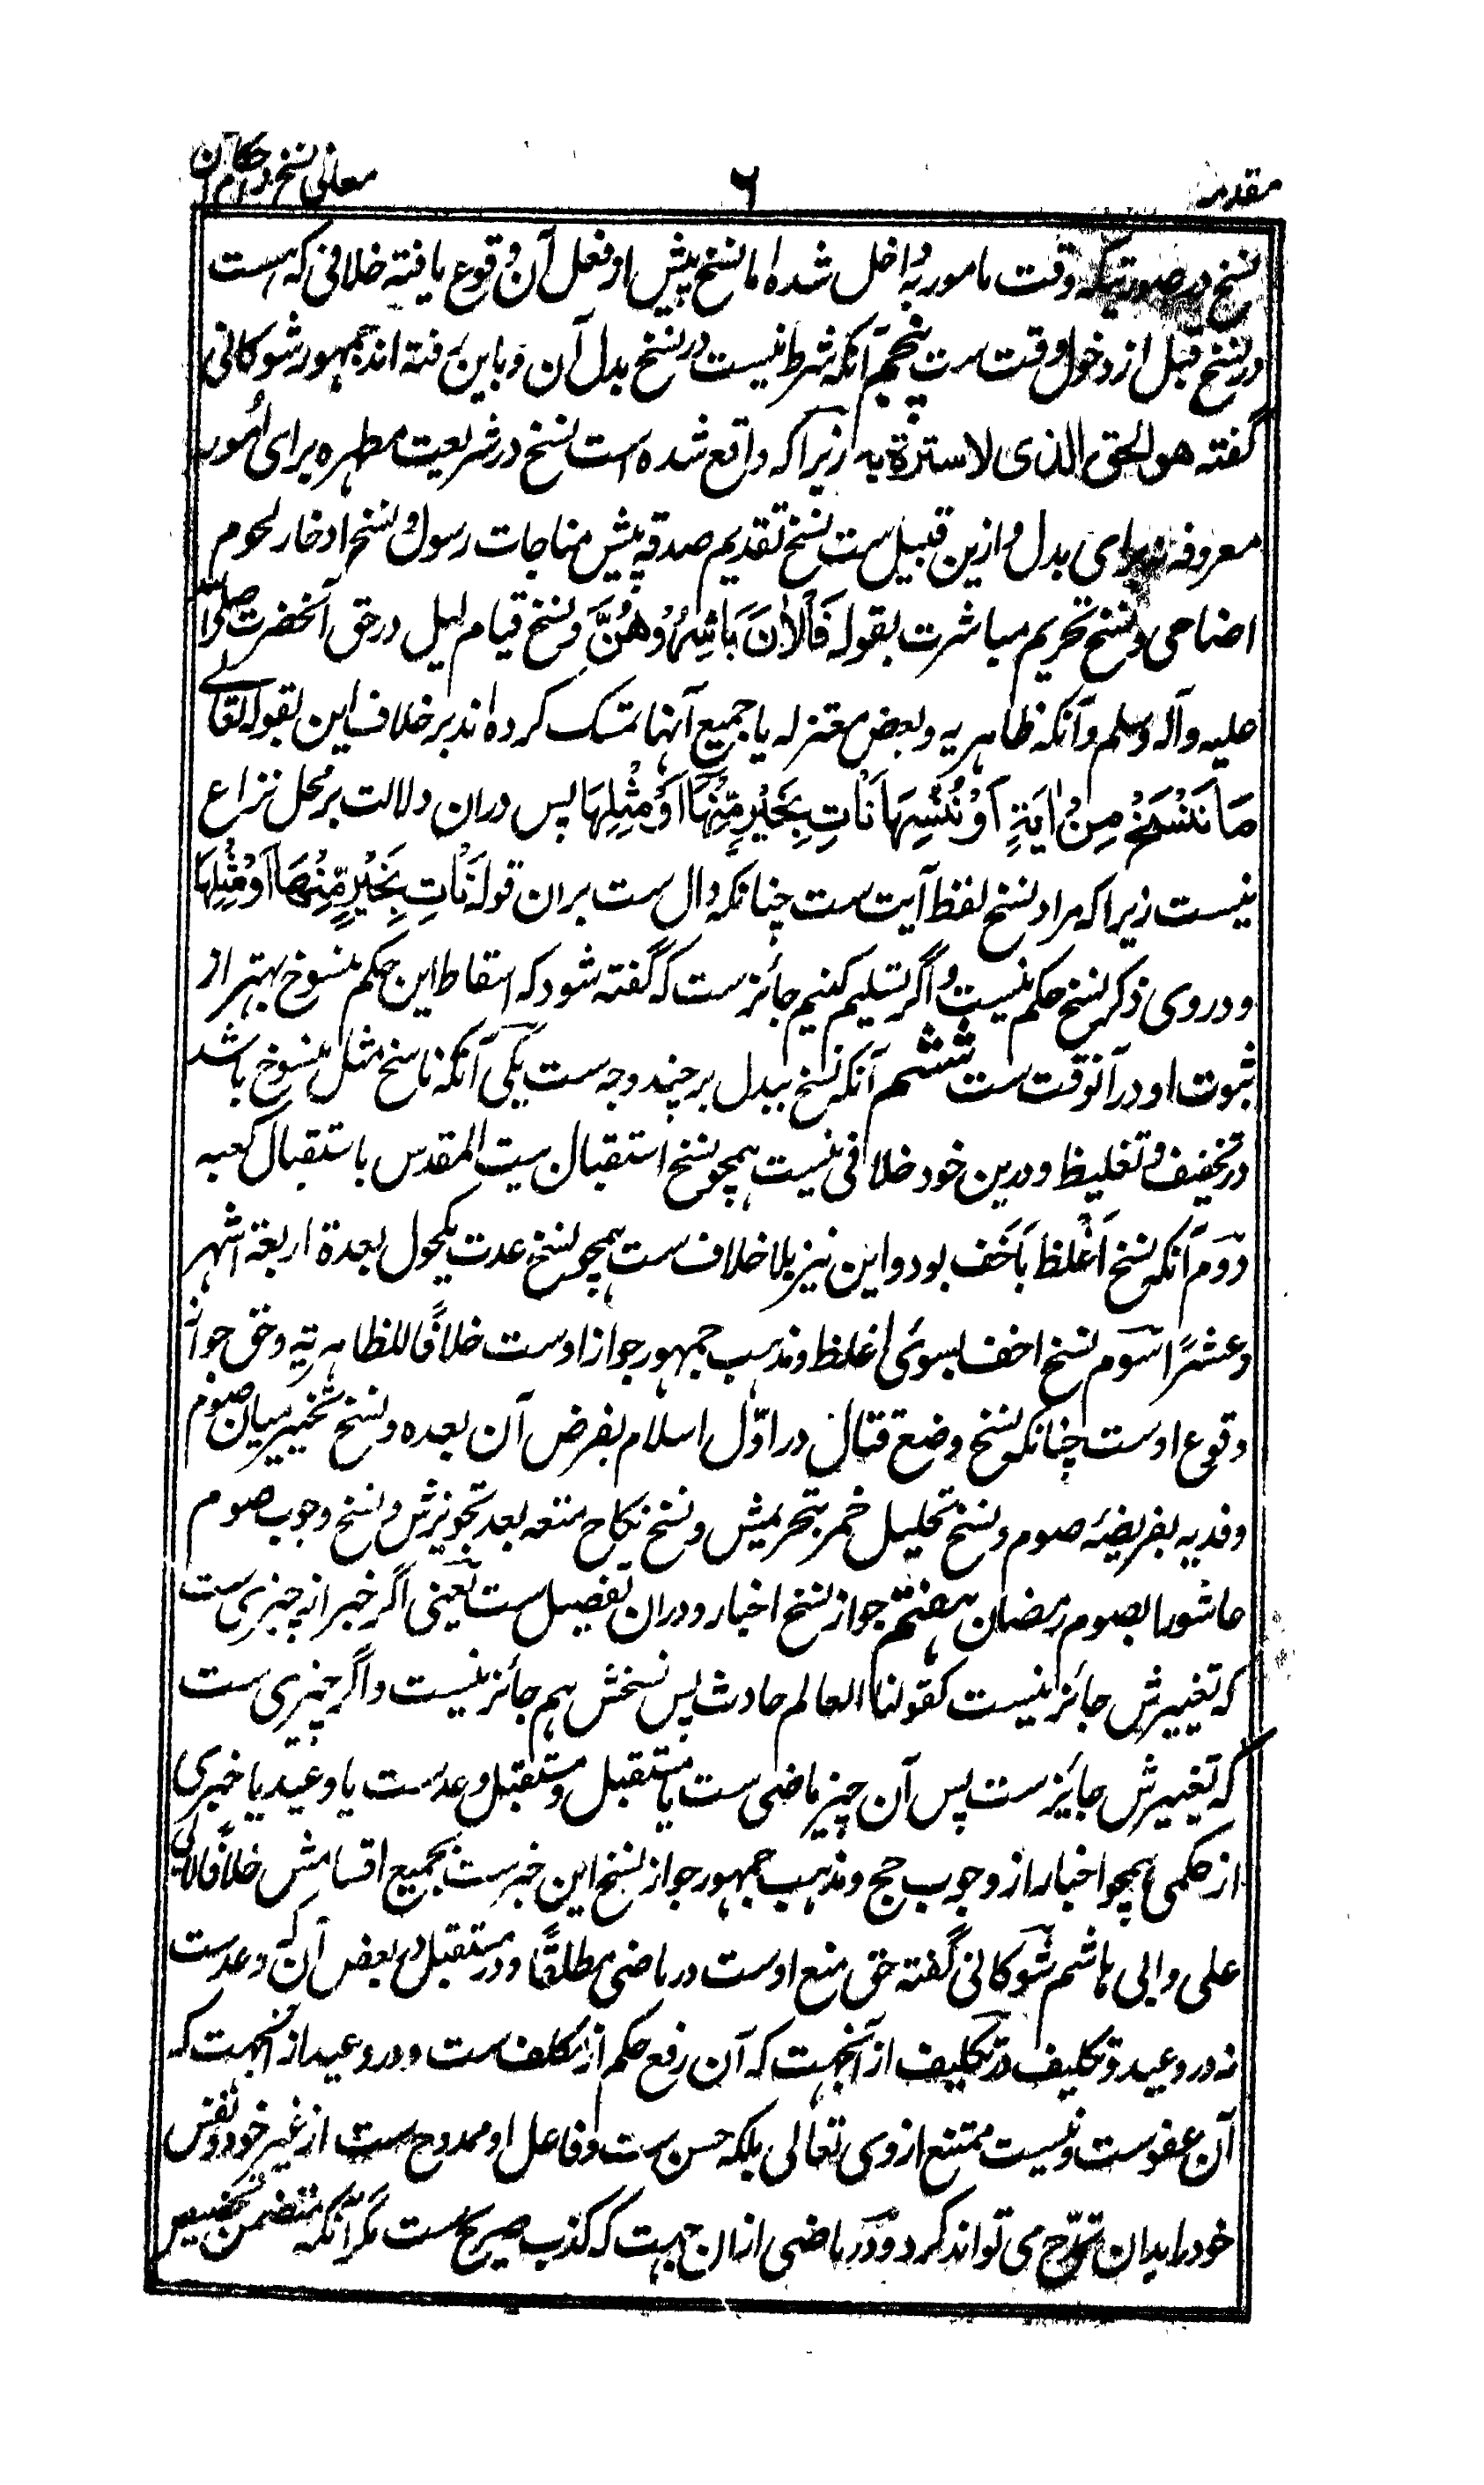 مقدمه
۶
معانی نسخ و احکام آن
نسخ در صورتیکه وقت مامور به داخل شده اما نسخ پیش از فعل آن وقوع یافته خلافی که هست
در نسخ قبل از دخول وقت ست پنجم آنکه شرط نیست در نسخ بدل آن و باین رفته اند جمهور شوکانی
گفته هو الحق الذی لا سترة به زیرا که واقع شده است نسخ در شریعت مطهره برای امور
معروفه نه برای بدل و ازین قبیل ست نسخ تقدیم صدقه پیش مناجات رسول و نسخ ادخار لحوم
اضاحی و نسخ تحریم مباشرت بقوله فَالْاٰنَ بَاشِرُوْهُنَّ و نسخ قیام لیل در حق آنحضرت صلی الله
علیه وآله وسلم وآنکه ظاهریه و بعض معتزله یا جمیع آنها تمسک کرده اند بر خلاف این بقوله تعالے
مَا نَنْسَخْ مِنْ اٰيَةٍ اَوْ نُنْسِهَا نَاْتِ بِخَيْرٍ مِّنْهَا اَوْ مِثْلِهَا پس دران دلالت بر محل نزاع
نیست زیرا که مراد نسخ لفظ آیت ست چنانکه دال ست بران قوله نَاْتِ بِخَيْرٍ مِّنْهَا اَوْ مِثْلِهَا
و در وی ذکر نسخ حکم نیست و اگر تسلیم کنیم جائز ست که گفته شود که اسقاط این حکم منسوخ بهتر از
ثبوت او در آنوقت ست ششم آنکه نسخ ببدل بر چند وجه ست یکی آنکه ناسخ مثل منسوخ باشد
در تخفیف و تغلیظ و درین خود خلافی نیست همچو نسخ استقبال بیت المقدس باستقبال کعبه
دوم آنکه نسخ اَغْلظ باَخَف بود و این نیز بلا خلاف ست همچو نسخ عدت بکحول بعدة اربعة اشهر
وعشرًا سوم نسخ اخف بسوئ اغلظ و مذهب جمهور جواز اوست خلافًا للظاهریة و حق جواز
وقوع اوست چنانکه نسخ وضع قتال در اوّل اسلام بفرض آن بعده و نسخ تخییر میان صوم
و فدیه بفریضهٔ صوم و نسخ تحلیل خمر بتحریمش و نسخ نکاح متعه بعد تجویزش و نسخ وجوب صوم
عاشورا بصوم رمضان هفتم جواز نسخ اخبار و دران تفصیل ست یعنی اگر خبر از چیزی ست
که تغییرش جائز نیست کقولنا العالم حادث پس نسخش هم جائز نیست و اگر چیزی ست
که تغییرش جایز ست پس آن چیز ماضی ست یا مستقبل و مستقبل وعد ست یا وعید یا خبری
از حکمی همچو اخبار از وجوب حج و مذهب جمهور جواز نسخ این خبر ست بجمیع اقسامش خلافًا لابی
علی و ابی هاشم شوکانی گفته حق منع اوست در ماضی مطلقًا و در مستقبل در بعض آن که وعد ست
نه در وعید و تکلیف در تکلیف از آنجهت که آن رفع حکم از مکلف ست و در وعید از آنجهت که
آن عفوست و نیست ممتنع از وی تعالی بلکه حسن ست و فاعل او ممدوح ست از غیر خود و نفس
خود را بدان تمدّح می تواند کرد و در ماضی ازان جهت که کذب صریح ست مگر آنکه متضمن تخصیص